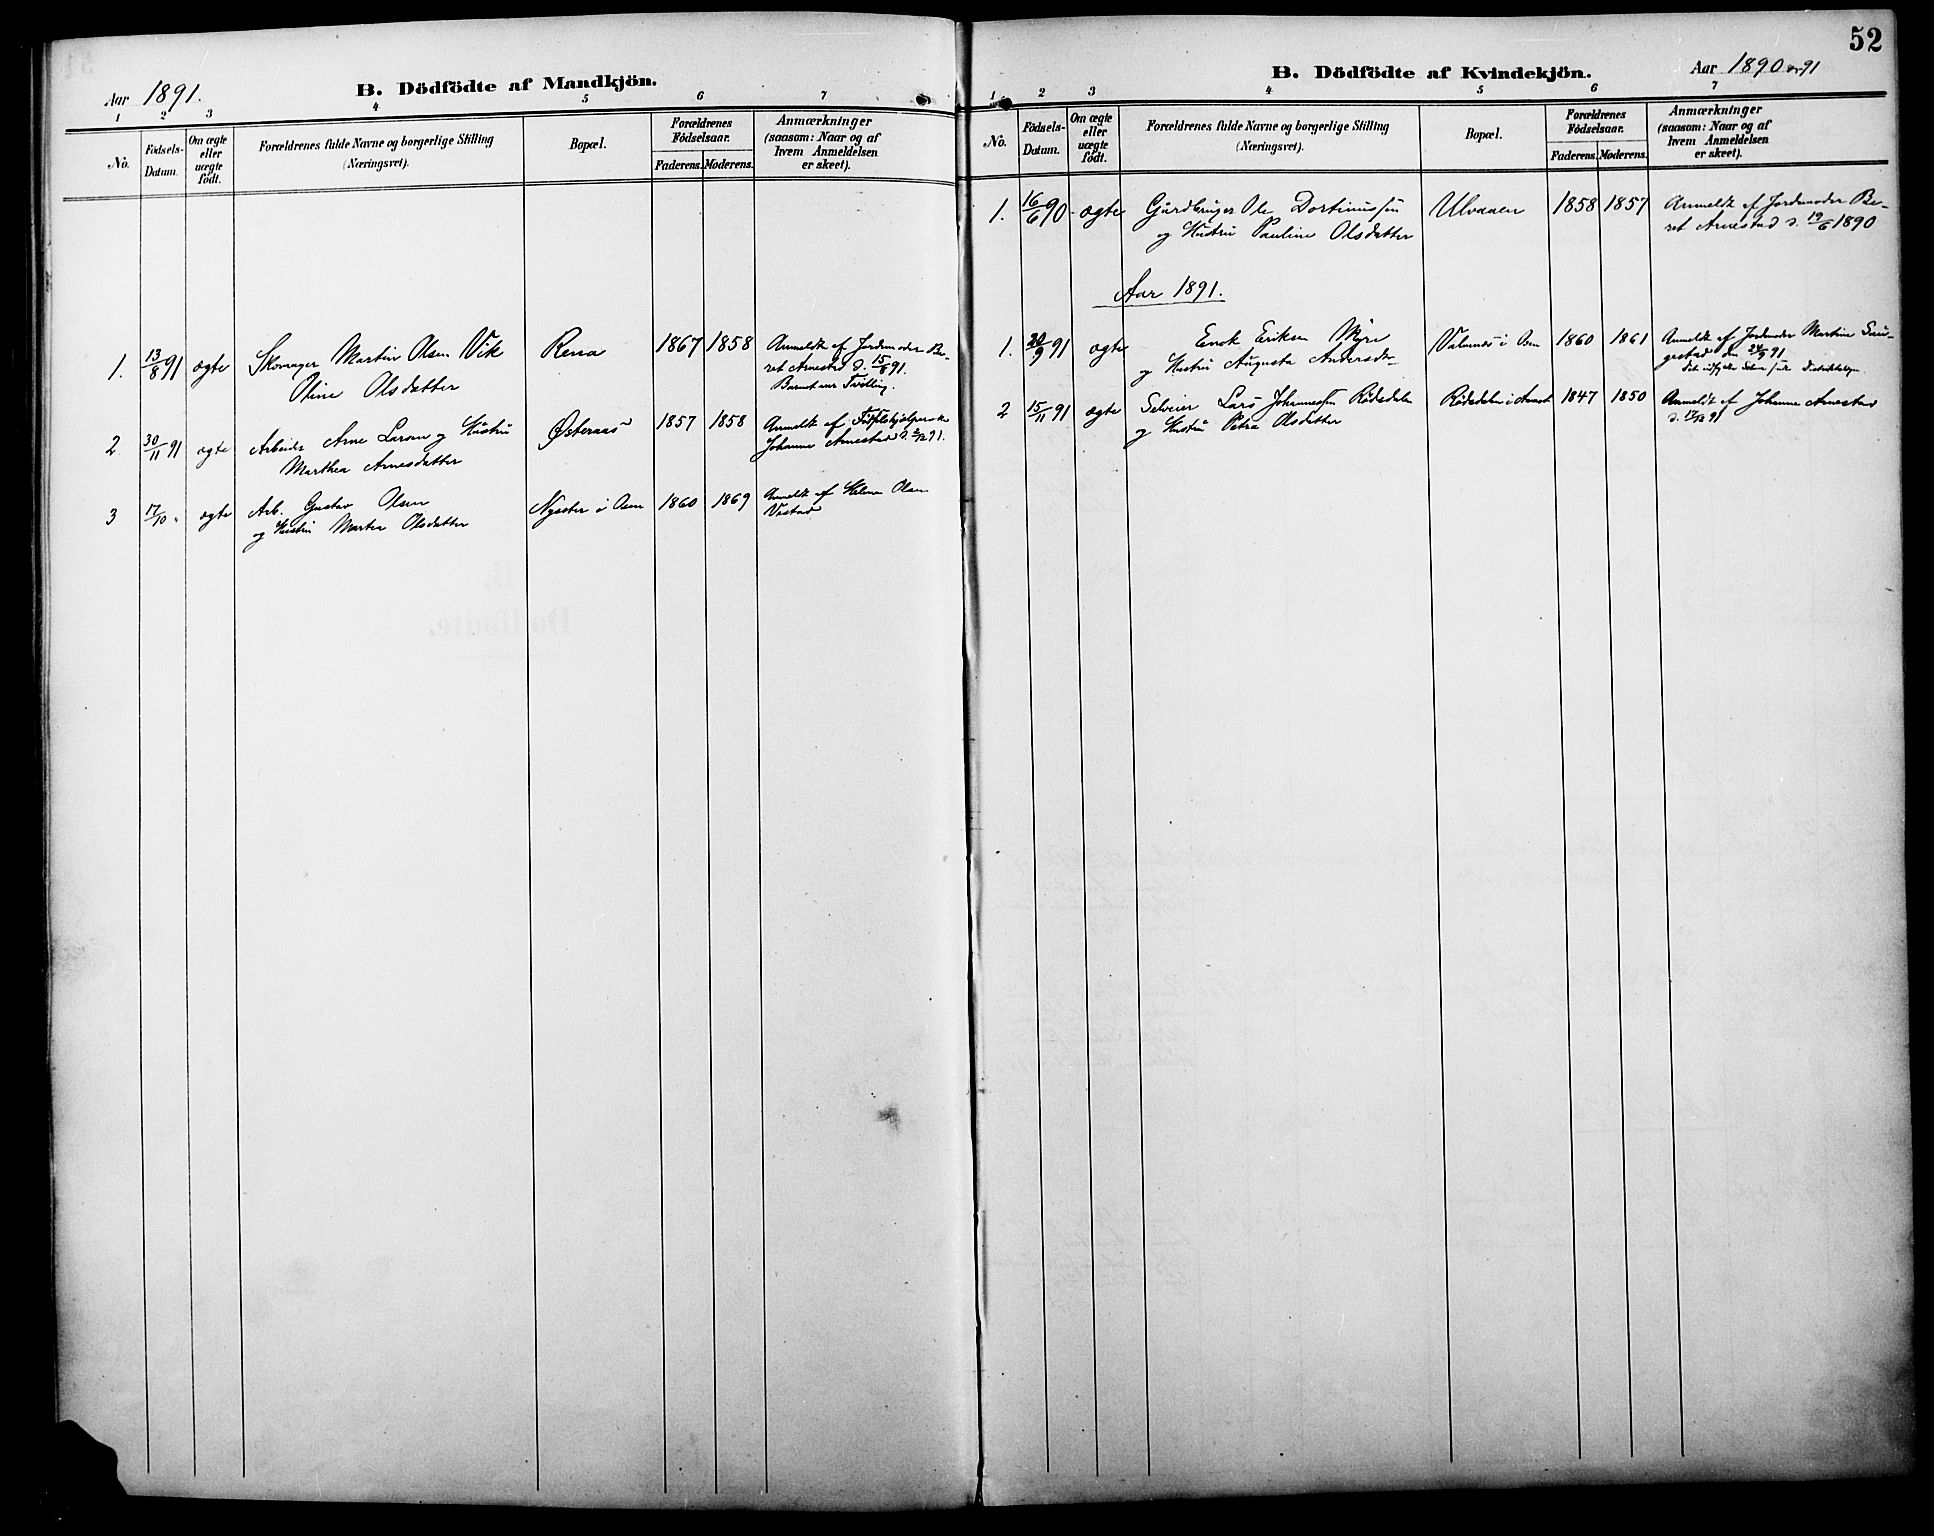 Aar 1891.
B. Dödfödte af Mandkjön.
1 2 3 4 5 6 7
No.
Födsels-Datum.
Om ægte eller uægte födt.
Forældrenes fulde Navne og borgerlige Stilling
(Næringsvei).
Bopæl.
Forældrenes Födselsaar.
Faderens. Moderens.
Anmærkninger
(saasom: Naar og af
hvem Anmeldelsen
er skeet).
1. 13/8 91 ægte Skovsager Martin Olsen Vik Rena 1867 1858 Anmeldt af Jordmoder Be-
Oline Olsdatter
ret Arnestad d. 15/8 91.
Barnet var Tvilling.
2 30/11 91 ægte Arbeider Arne Larsen og Hustru Østeraas 1857 1858 Anmeldt af
Marthea Arnesdatter
Johanne Arnestad d. 91.
3 17/10 " ægte Arb. Gustav Olsen Nysæter i Osen 1860 1869 Anmeldt af Olsen
og Hustru Martea Olsdatter
Vestad
52
B. Dödfödte af Kvindekjön.
Aar 1890 og 91
1 2 3 4 5 6 7
No.
Födsels-Datum.
Om ægte eller uægte födt.
Forældrenes fulde Navne og borgerlige Stilling
(Næringsvei).
Bopæl.
Forældrenes Födselsaar.
Faderens. Moderens.
Anmærkninger
(saasom: Naar og af
hvem Anmeldelsen
er skeet).
1. 16/6 90 ægte Gårdbruger Ole Dortinussen Ulvaaen 1858 1857 Anmeldt af Jordmoder Be-
og Hustru Pauline Olsdatter
ret Arnestad d. 19/6 1890
Aar 1891.
1. 20/9 91 ægte Eriksen Myre i Osen 1860 1861 Anmeldt af Jordmoder Martine
og Hustru Augusta Andersda-
den 24/9 91
2 15/11 91 ægte Selveier Lars Johannessen Rödsdalen Rödsdalen i 1847 1850 Anmeldt af Johanne Arnestad
og Hustru Petra Olsdatter
d. 17/12 91